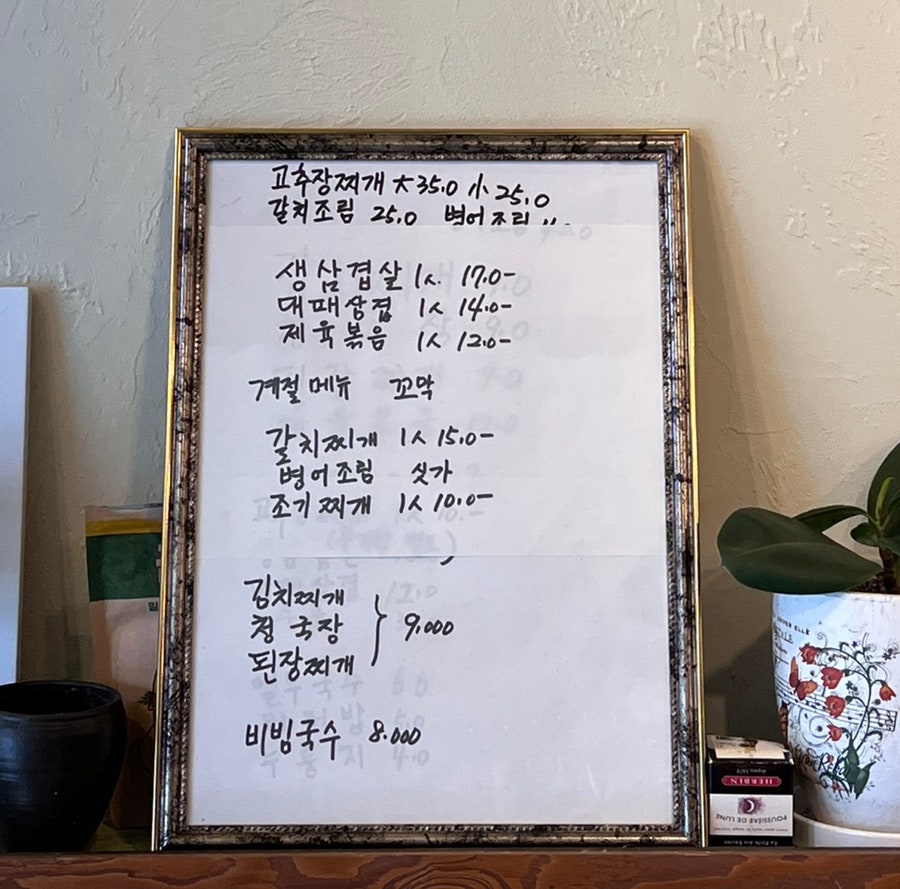 고추장찌개 大 35.0 小 25.0
갈치조림 25.0 병어조림 〃
생삼겹살 1人. 17.0-
대패삼겹 1人 14.0-
제육볶음 1人 12.0-
계절메뉴 꼬막
갈치찌개 1人 15.0-
병어조림 싯가
조기찌개 1人 10.0-
김치찌개
청국장 } 9,000
된장찌개
비빔국수 8.000
HERBIN
POUSSIÈRE DE LUNE